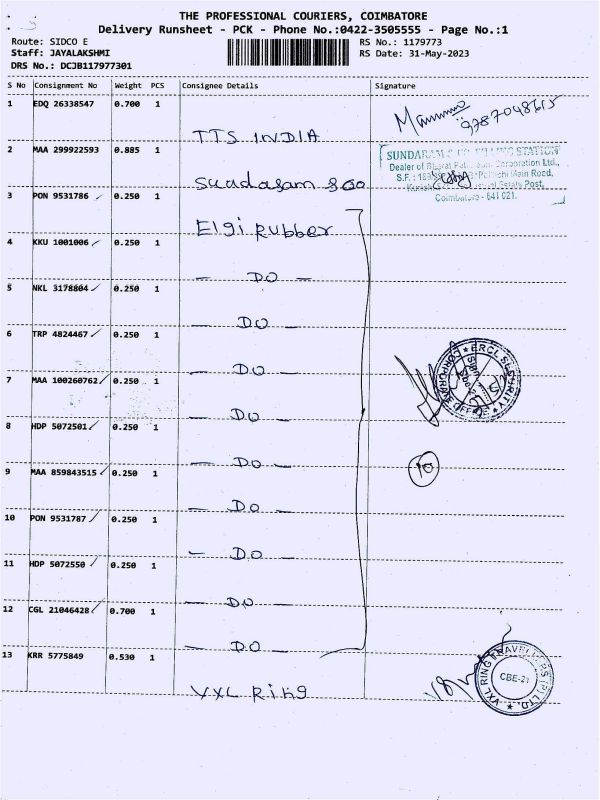 THE PROFESSIONAL COURIERS, COIMBATORE
Delivery Runsheet - PCK - Phone No.:0422-3505555 - Page No.:1
Route: SIDCO E
RS No.: 1179773
Staff: JAYALAKSHMI
RS Date: 31-May-2023
DRS No.: DCJB117977301
S No Consignment No Weight PCS Consignee Details Signature
1 EDQ 26338547 0.700 1
TTS INDIA
9787048615
2 MAA 299922593 0.885 1
SUNDARAM
Dealer of Bharat Corporation Ltd.,
Main Road,
Estate Post,
Coimbatore - 641 021.
3 PON 9531786 0.250 1
Elgi Rubber
4 KKU 1001006 0.250 1
— DO —
5 NKL 3178804 0.250 1
— DO —
6 TRP 4824467 0.250 1
— DO —
7 MAA 100260762 0.250 1
— DO —
ERCL SECURITY
CORPORATE OFFICE
8 HDP 5072501 0.250 1
— DO —
10
9 MAA 859843515 0.250 1
— DO —
10 PON 9531787 0.250 1
— DO —
11 HDP 5072550 0.250 1
— DO —
12 CGL 21046428 0.700 1
— DO —
13 KRR 5775849 0.530 1
VXL Ring
VXL RING TRAVELLERS (P) LTD.
CBE-21